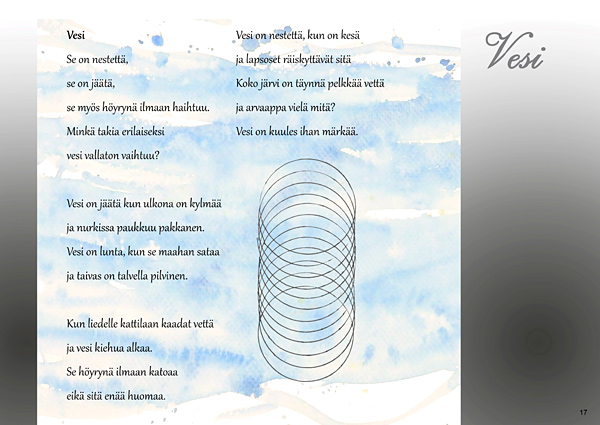 Vesi
Se on nestettä,
se on jäätä,
se myös höyrynä ilmaan haihtuu.
Minkä takia erilaiseksi
vesi vallaton vaihtuu?
Vesi on jäätä kun ulkona on kylmää
ja nurkissa paukkuu pakkanen.
Vesi on lunta, kun se maahan sataa
ja taivas on talvella pilvinen.
Kun liedelle kattilaan kaadat vettä
ja vesi kiehua alkaa.
Se höyrynä ilmaan katoaa
eikä sitä enää huomaa.
Vesi on nestettä, kun on kesä
ja lapsoset räiskyttävät sitä
Koko järvi on täynnä pelkkää vettä
ja arvaappa vielä mitä?
Vesi on kuules ihan märkää.
Vesi
17